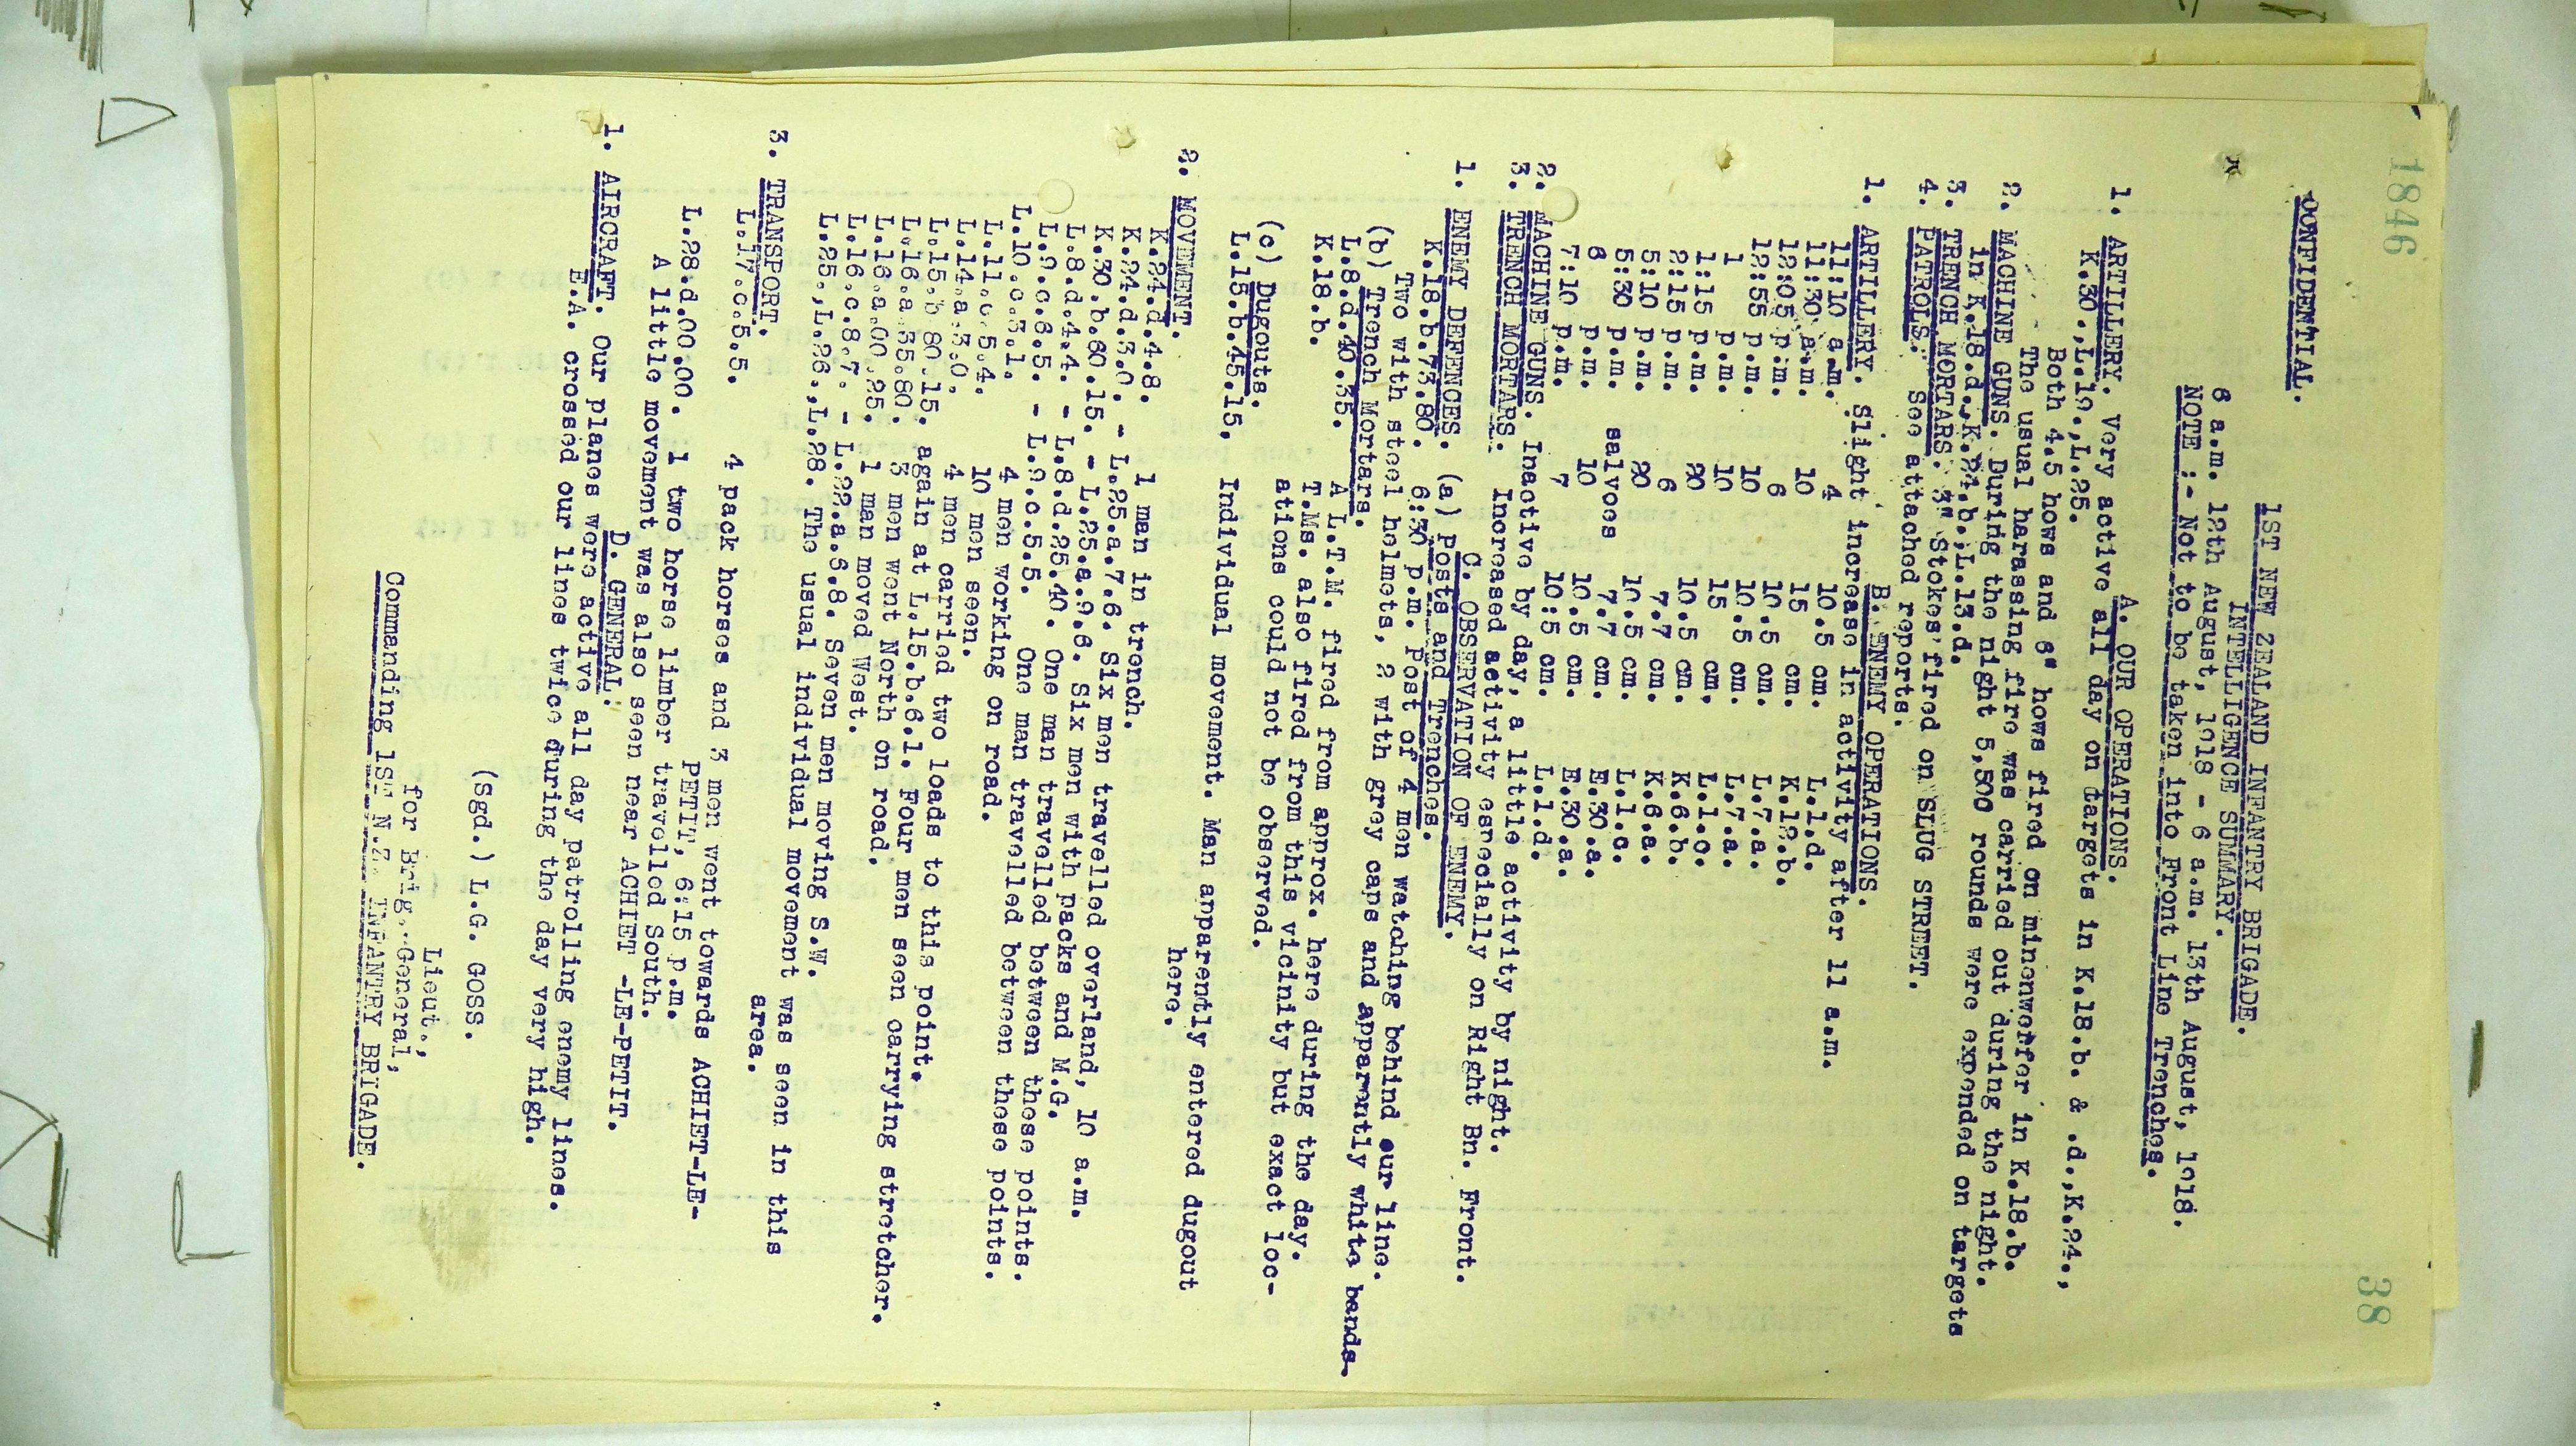 1846
38
CONFIDENTIAL.
1ST NEW ZEALAND INFANTRY BRIGADE.
INTELLIGENCE SUMMARY.
6 a.m. 12th August, 1918 - 6 a.m. 13th August, 1918.
NOTE :- Not to be taken into Front Line Trenches.
A. OUR OPERATIONS.
1. ARTILLERY. Very active all day on targets in K.18.b. & .d.,K.24.,
K.30.,L.19.,L.25.
Both 4.5 hows and 6" hows fired on minenwerfer in K.18.b.
The usual harassing fire was carried out during the night.
2. MACHINE GUNS. During the night 5,500 rounds were expended on targets
in K.18.d.,K.24.b.,L.13.d.
3. TRENCH MORTARS. 3" Stokes fired on SLUG STREET.
4. PATROLS. See attached reports.
B. ENEMY OPERATIONS.
1. ARTILLERY. Slight increase in activity after 11 a.m.
11:10 a.m. 4 10.5 cm. L.1.d.
11:30 a.m. 10 15 cm. K.12.b.
12:05 p.m. 6 10.5 cm. L.7.a.
12:55 p.m. 10 10.5 cm. L.7.a.
1 p.m. 10 15 cm. L.1.c.
1:15 p.m. 20 10.5 cm. K.6.b.
2:15 p.m. 6 7.7 cm. K.6.a.
5:10 p.m. 20 10.5 cm. L.1.c.
5:30 p.m. salvoes 7.7 cm. E.30.a.
6 p.m. 10 10.5 cm. E.30.a.
7:10 p.m. 7 10:5 cm. L.1.d.
2. MACHINE GUNS. Inactive by day, a little activity by night.
3. TRENCH MORTARS. Increased activity especially on Right Bn. Front.
C. OBSERVATION OF ENEMY.
1. ENEMY DEFENCES. (a) Posts and Trenches.
K.18.b.73.80. 6:30 p.m. Post of 4 men watching behind our line.
Two with steel helmets, 2 with grey caps and apparently white bands
(b) Trench Mortars.
L.8.d.40.35. A L.T.M. fired from approx. here during the day.
K.18.b. T.Ms. also fired from this vicinity but exact loc-
ations could not be observed.
(c) Dugouts.
L.15.b.45.15. Individual movement. Man apparently entered dugout
here.
2. MOVEMENT.
K.24.d.4.8. 1 man in trench.
K.24.d.3.0. - L.25.a.7.6. Six men travelled overland, 10 a.m.
K.30.b.60.15. - L.25.a.9.6. Six men with packs and M.G.
L.8.d.4.4. - L.8.d.25.40. One man travelled between these points.
L.9.c.6.5. - L.9.c.5.5. One man travelled between these points.
L.10.c.3.1. 4 men working on road.
L.11.c.5.4. 10 men seen.
L.14.a.3.0. 4 men carried two loads to this point.
L.15.b.80.15. again at L.15.b.6.1. Four men seen carrying stretcher.
L.16.a.35.80. 3 men went North on road.
L.16.a.00.25. 1 man moved West.
L.16.c.8.7. - L.22.a.6.8. Seven men moving S.W.
L.25.,L.26.,L.28. The usual individual movement was seen in this
area.
3. TRANSPORT.
L.17.c.5.5. 4 pack horses and 3 men went towards ACHIET-LE-
PETIT, 6:15 p.m.
L.28.d.00.00. 1 two horse limber travelled South.
A little movement was also seen near ACHIET -LE-PETIT.
D. GENERAL.
1. AIRCRAFT. Our planes were active all day patrolling enemy lines.
E.A. crossed our lines twice during the day very high.
(Sgd.) L.G. GOSS.
Lieut.,
for Brig.-General,
Commanding 1ST N.Z. INFANTRY BRIGADE.